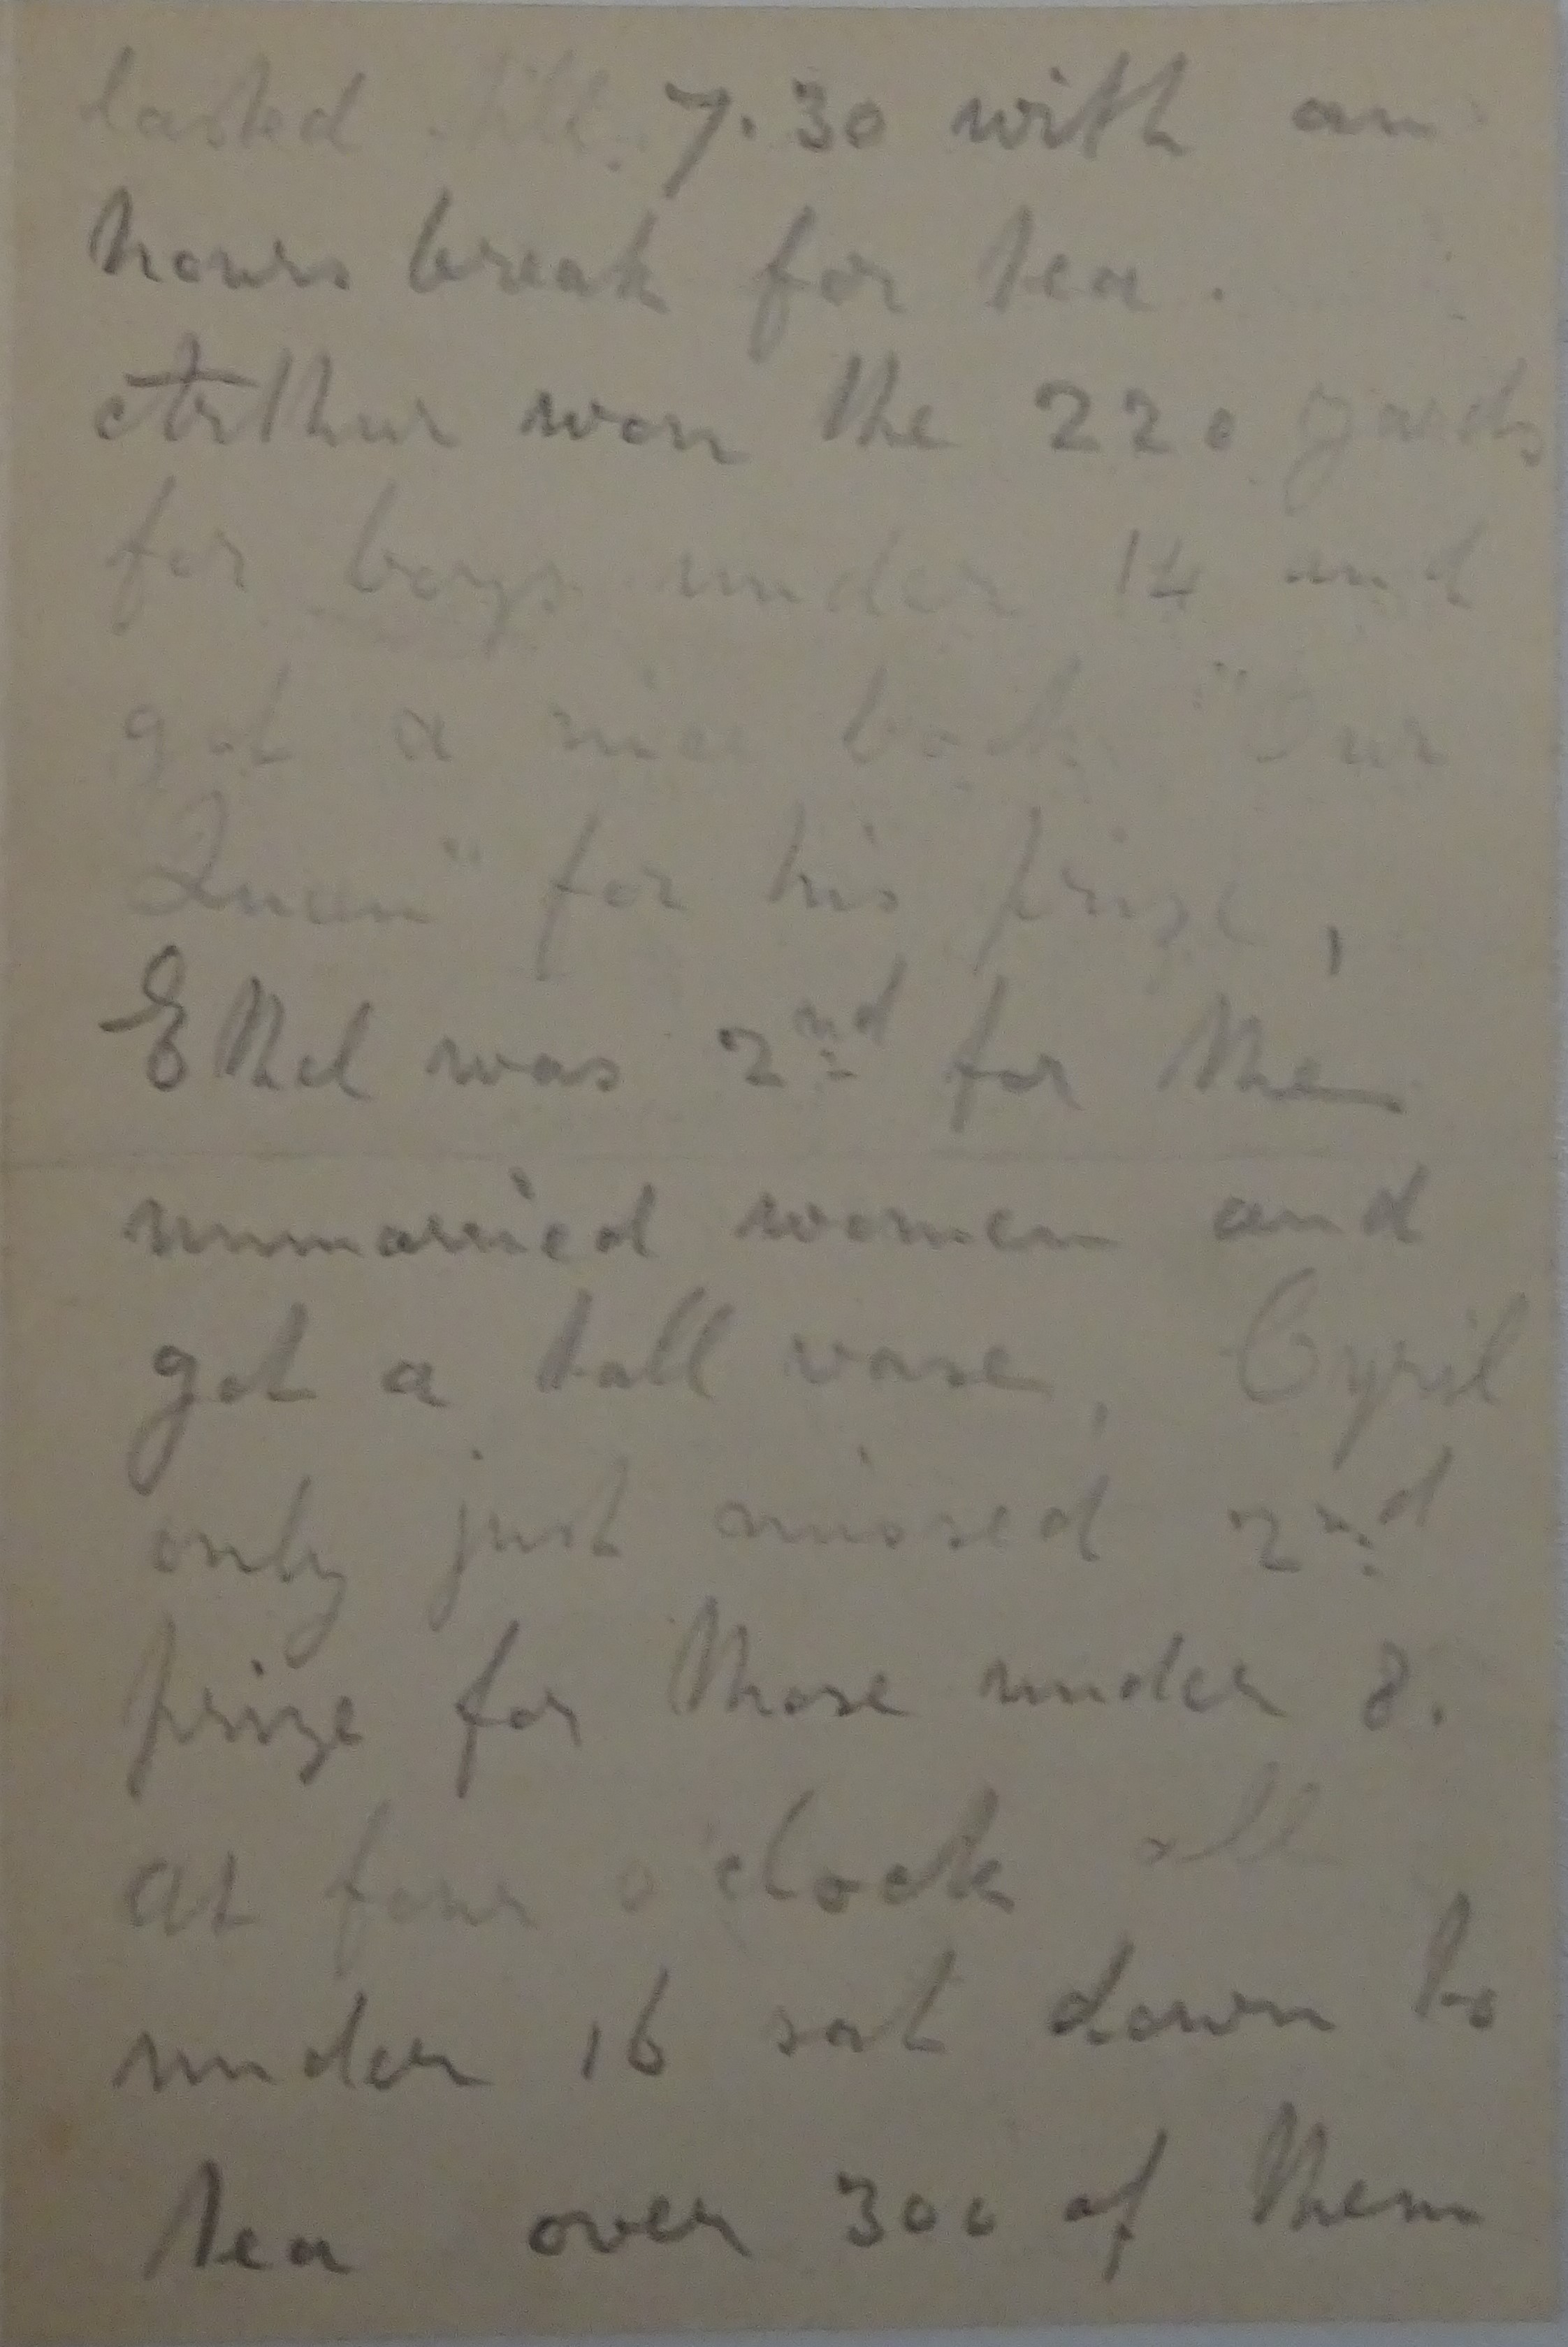 lasted till 7.30 with an
hours break for tea.
Arthur won the 220 yards
for boys under 14 and
got a nice book "Our
Queen" for his prize,
Ethel was 2nd for the
unmarried women and
got a tall vase, Cyril
only just missed 2nd
prize for those under 8.
At four o'clock all
under 16 sat down to
tea over 300 of them